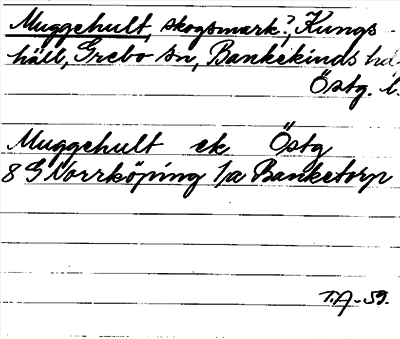 Muggehult, skogsmark?, Kungs-
häll, Grebo sn, Bankekinds hd
Östg. l.
Muggehult ek Östg
8 G Norrköping 1/a Banketorp
T.A-59.